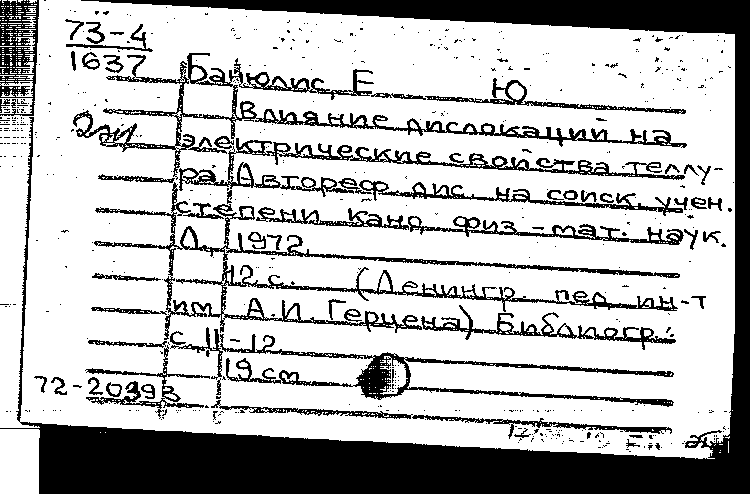 73-4
1637
Банюлис, Е Ю
Влияние дислокаций на
2 эи
электрические свойства теллу-
ра. Автореф. дис. на соиск. учен.
степени канд. физ-мат. наук.
Л., 1972.
12 с. (Ленингр. пед. ин-т
им. А.И. Герцена) Библиогр.:
с. 11-12.
19 см
72-20393